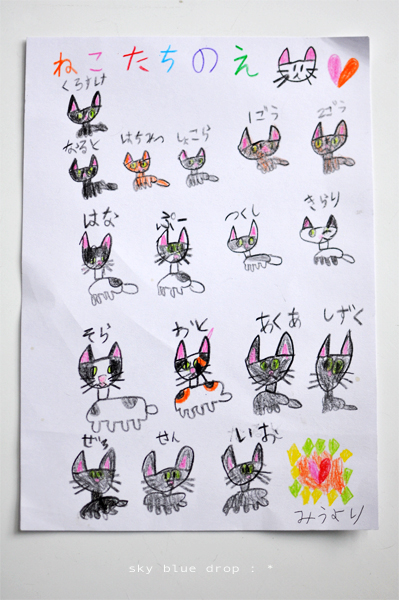 ねこたちのえ
くろすけ
なると はちみつ しょこら 1ごう 2ごう
はな ぷー つくし きらり
そら おと あくあ しずく
ぜろ せん いお
みうより
sky blue drop : *